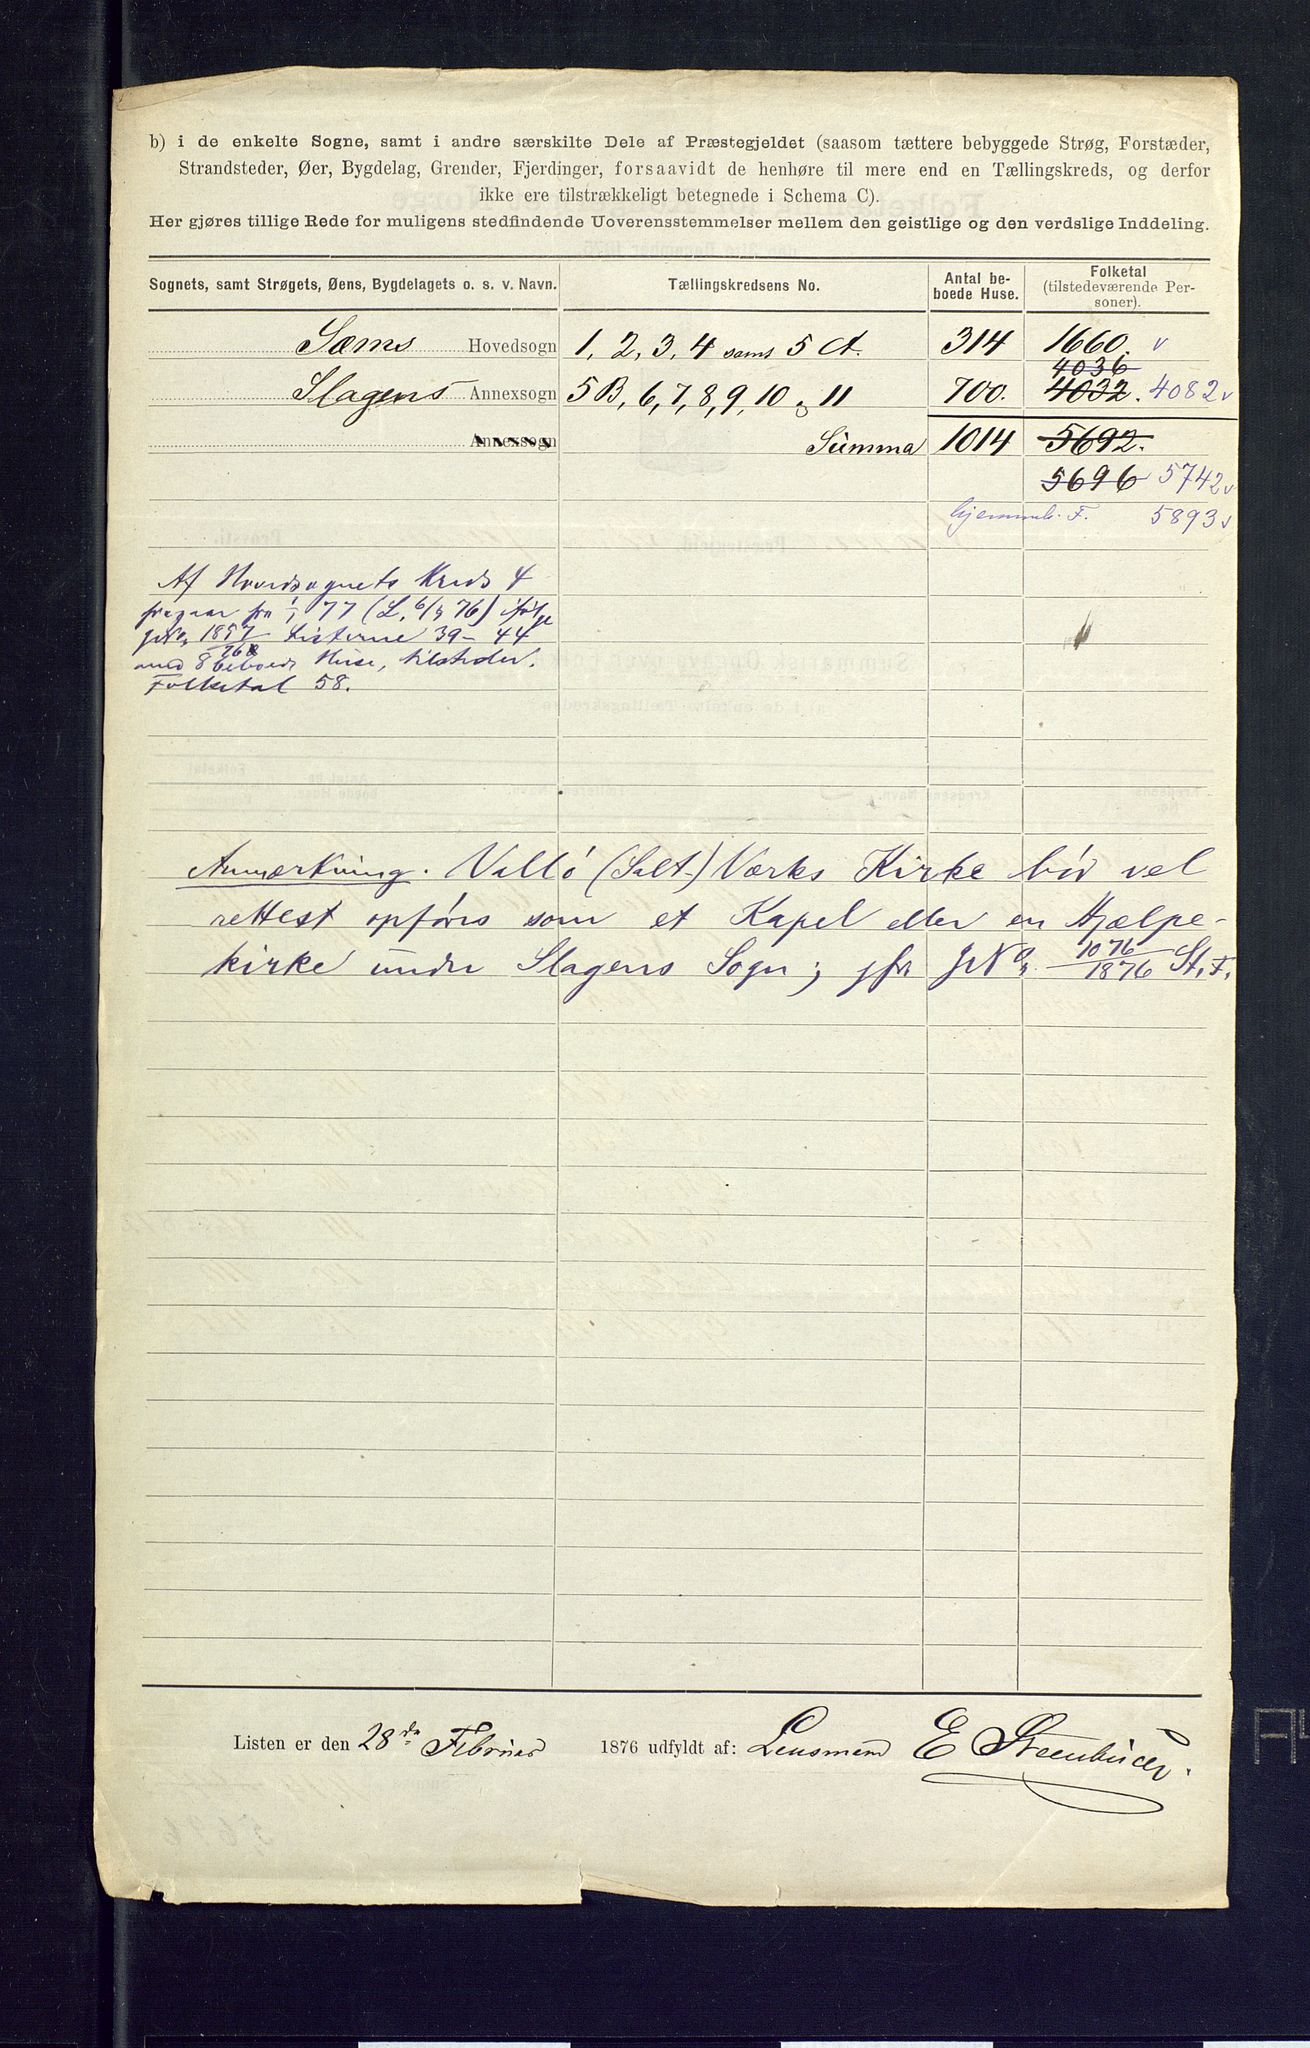 b) i de enkelte Sogne, samt i andre særskilte Dele af Præstegjeldet (saasom tættere bebyggede Strøg, Forstæder,
Strandsteder, Øer, Bygdelag, Grender, Fjerdinger, forsaavidt de henhøre til mere end en Tællingskreds, og derfor
ikke ere tilstrækkeligt betegnede i Schema C).
Her gjøres tillige Rede for muligens stedfindende Uoverensstemmelser mellem den geistlige og den verdslige Inddeling.
Sognets, samt Strøgets, Øens, Bygdelagets o. s. v. Navn. Tællingskredsens No. Antal beboede Huse. Folketal (tilstedeværende Personer).
Sæms Hovedsogn 1, 2, 3, 4 samt 5 A. 314 1660. v
4036
Slagens Annexsogn 5 B, 6, 7, 8, 9, 10 o 11 700. 4032. 4082 v
Annexsogn Summa 1014 5692.
5696 5742 v
hjemmeh. F. 5893 v
Af Hovedsognets Kreds 4
fragaar fra 1/1 77 (L. 6/5 76) ifølge
JNo. 1857/76 Listerne 39-44
med 8 beboede Huse, tilstedev.
Folketal 58.
Anmærkning. Vallö (Salt-) Værks Kirke bör vel
rettest opföres som et Kapel eller en Hjælpe-
kirke under Slagens Sogn; jfr JNo. 1076/1876 St. F.
Listen er den 28de Februar 1876 udfyldt af: Lensmand E Steenbücer.